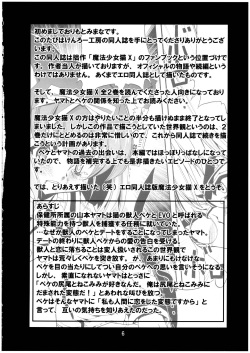 初めましておりもとみまなです。
このたびはけんろー工房の同人誌を手にとってくださりありがとうございます。
この同人誌は拙作「魔法少女猫X」のファンブックという位置づけです。作者当人が描いておりますが、オフィシャルの物語や続編というわけではありません。あくまでエロ同人誌として描いたものです。
そして、魔法少女猫X全2巻を読んでくださった人向きになっております。ヤマトとペケの関係を知った上でお読みください。
魔法少女猫Xの方はやりたいことの半分も描けぬまま終了となってしまいました。しかしこの作品で描こうとした世界観というのは、2巻だけにとどめるのは非常に惜しいので、これから同人誌で続きを描こうという計画があります。
ペケとヤマトの過去の出会いは、本編ではほっぽりっぱなしになっているので、物語を完結する上でも是非描きたいエピソードのひとつです。
では、とりあえず描いた(笑)エロ同人誌版魔法少女猫Xをどうぞ、
あらすじ
保健所所属の山本ヤマトは猫の獣人ペケとEVOと呼ばれる
特殊能力を持つ獣人を捕獲する任務に就いていた。
…なぜか獣人のペケとデートをすることになってしまったヤマト。
デートの終わりに獣人ペケからの愛の告白を受ける。
獣人と恋に落ちることは変人扱いされるこの世界観で
ヤマトは荒々しくペケを突き放す。が、あまりにもけなげな
ペケを目の当たりにしてついに自分のペケへの思いを言うようになる
しかし、素直になれないヤマトはとっさに
「ペケの尻尾とねこみみにさかってるだけだ。俺は尻尾とねこみみに
たまされた変態だ!」とあわれな叫びを放つ
ペケはそんなヤマトに「私も人間に恋をした変態ですから」と
言って、互いの気持ちを知りあったのだった。
6